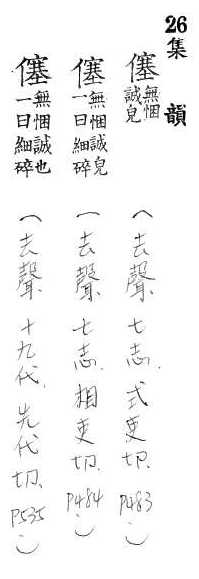 26集韻
僿無悃誠皃(去聲、七志、式吏切、P483)
僿無悃誠皃一曰細碎(去聲、七志、相吏切、P484)
僿無悃誠也一曰細碎(去聲、十九代、先代切、P535)